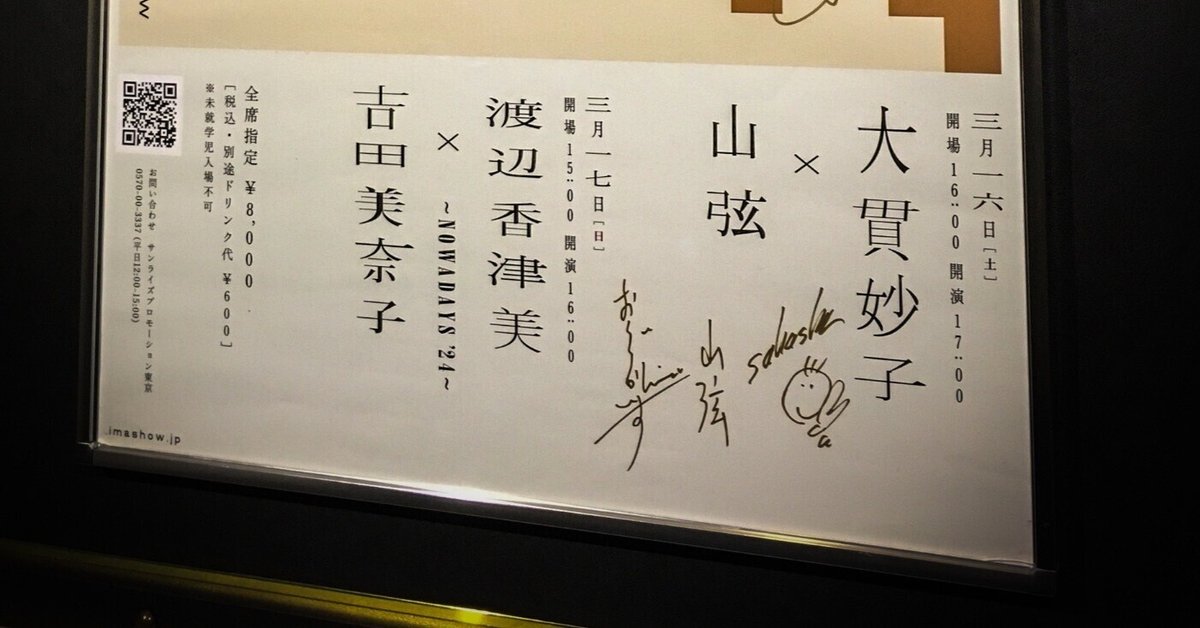 三月一六日［土］
開場 16:00 開演 17:00
大貫妙子
×
山弦
三月一七日［日］
開場 15:00 開演 16:00
渡辺香津美
×
～NOWADAYS '24～
吉田美奈子
全席指定 ¥8,000
［税込・別途ドリンク代 ¥600］
※未就学児入場不可
お問い合わせ サンライズプロモーション東京
0570-00-3337（平日12:00-15:00）
imashow.jp
山弦